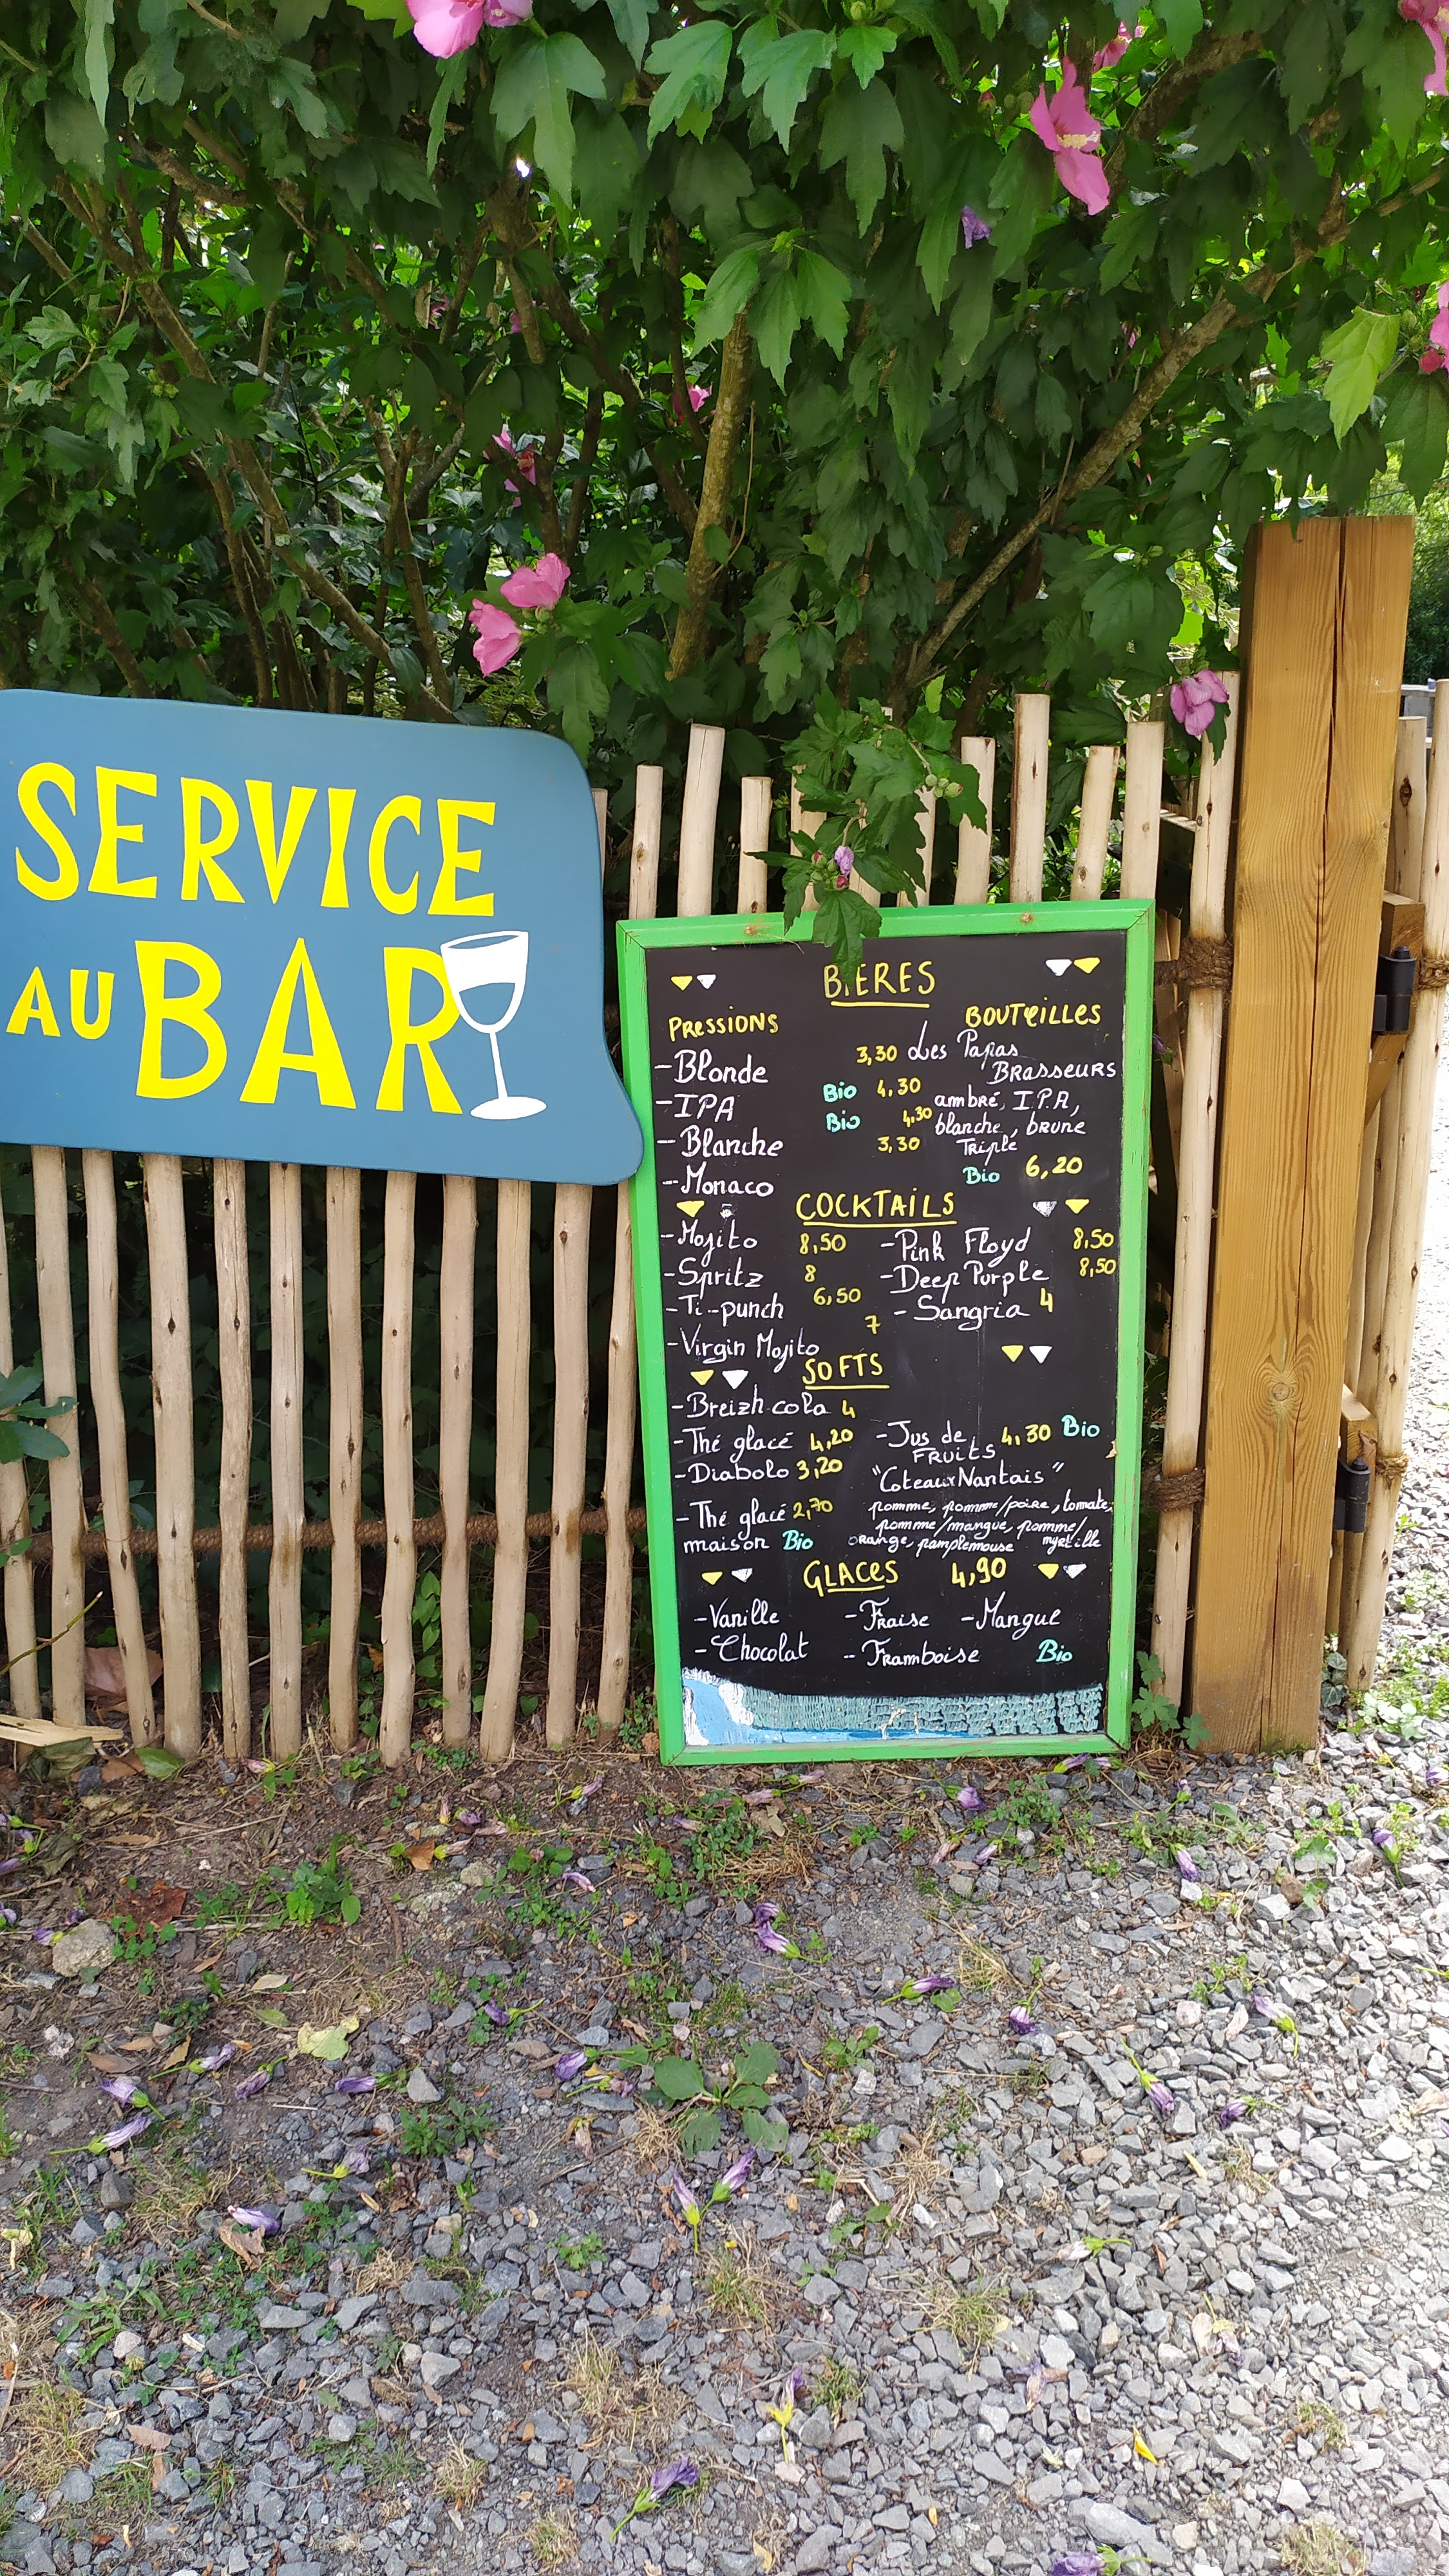 SERVICE
AU BAR
BIERES
PRESSIONS
BOUTEILLES
-Blonde 3,30
-IPA Bio 4,30
-Blanche Bio 4,30
-Monaco 3,30
Les Papas
BRASSEURS
ambré, I.P.A,
blanche, brune
Triple
Bio 6,20
COCKTAILS
-Mojito 8,50
-Spritz 8
-Ti-punch 6,50
-Virgin Mojito 7
-Pink Floyd 8,50
-Deep Purple 8,50
-Sangria 4
SOFTS
-Breizh cola 4
-Thé glacé 4,20
-Diabolo 3,20
-Thé glacé 2,70
maison Bio
-Jus de 4,30 Bio
FRUITS
"Coteaux Nantais"
pomme, pomme/poire, tomate,
pomme/mangue, pomme/
orange, pamplemouse myrtille
GLACES 4,90
-Vanille -Fraise -Mangue
-Chocolat -Framboise Bio